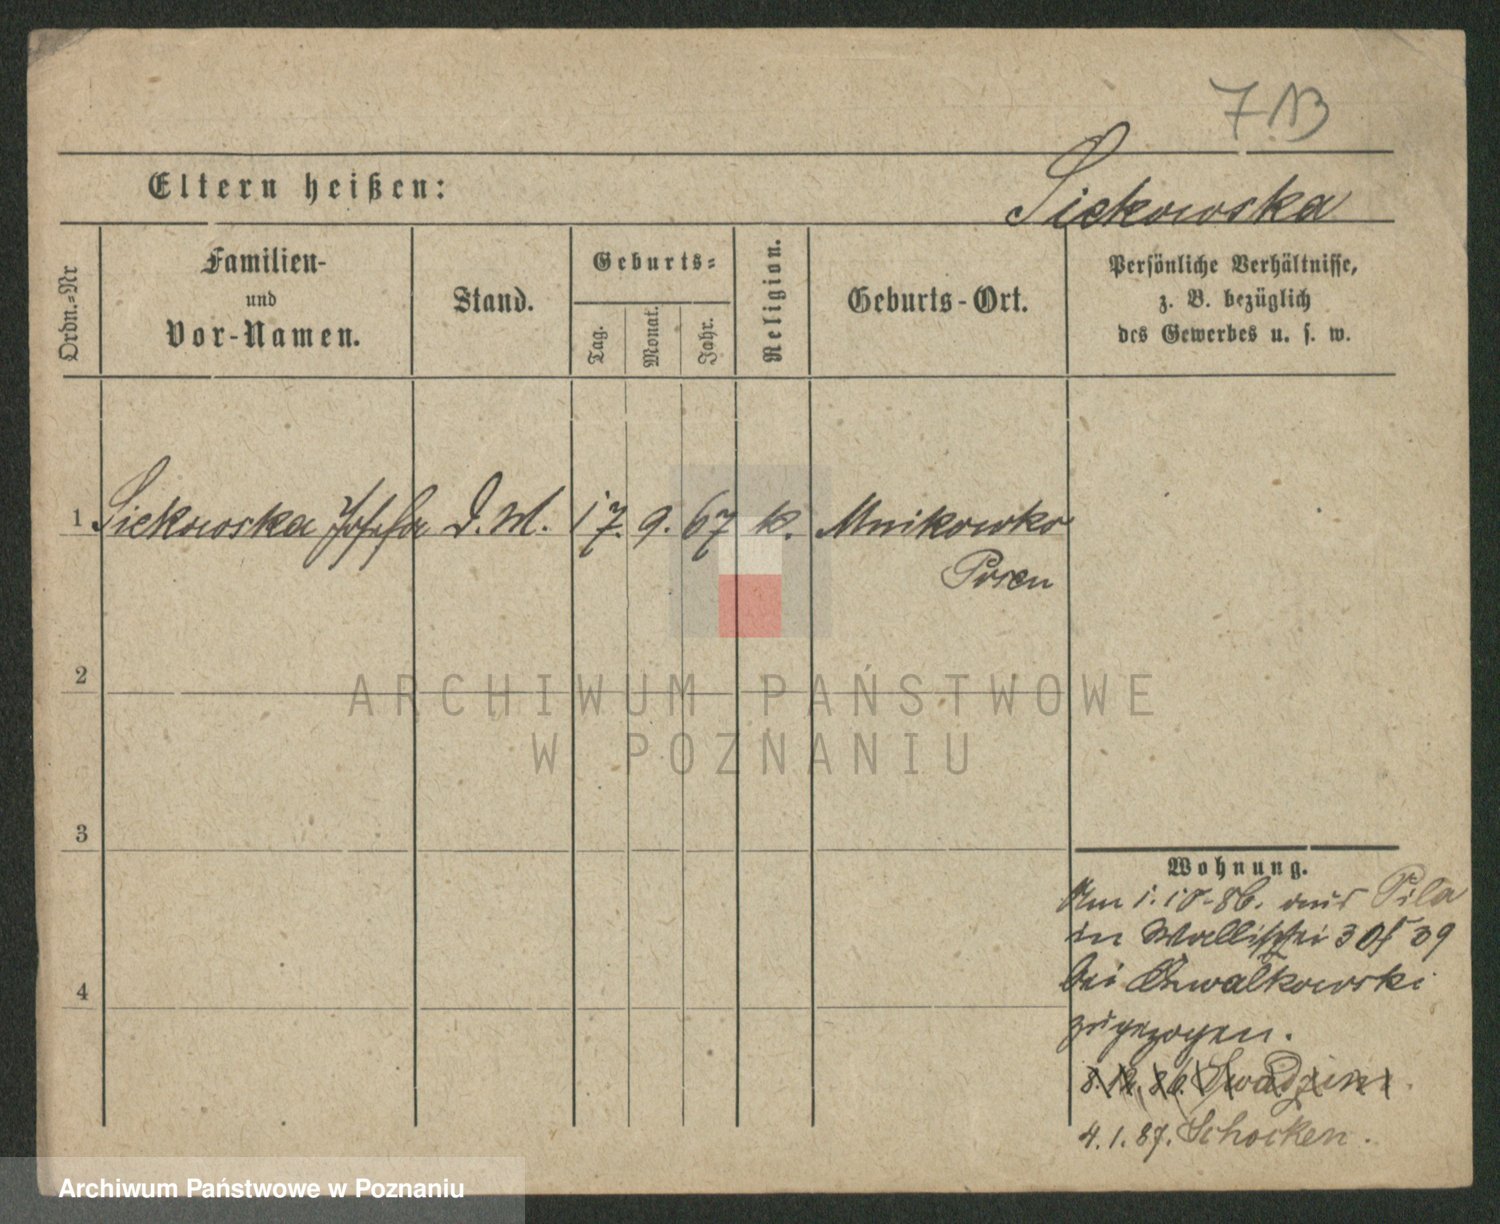 713
Eltern heißen:
Siekowska
Ordn.-Nr
Familien-
und
Vor-Namen.
Stand.
Geburts-
Tag.
Monat.
Jahr.
Religion.
Geburts-Ort.
Persönliche Verhältnisse,
z. B. bezüglich
des Gewerbes u. s. w.
1 Siekowska Josefa D. M. 17. 9. 67 k. Mnikowko
Posen
2
ARCHIWUM PAŃSTWOWE
W POZNANIU
3
Wohnung.
Am 1. 10. 86. aus Pila
in Wallischei 38/39
bei Chwalkowski
4
zugezogen.
8. 12. 86. Swadzim.
4. 1. 87. Schocken.
Archiwum Państwowe w Poznaniu